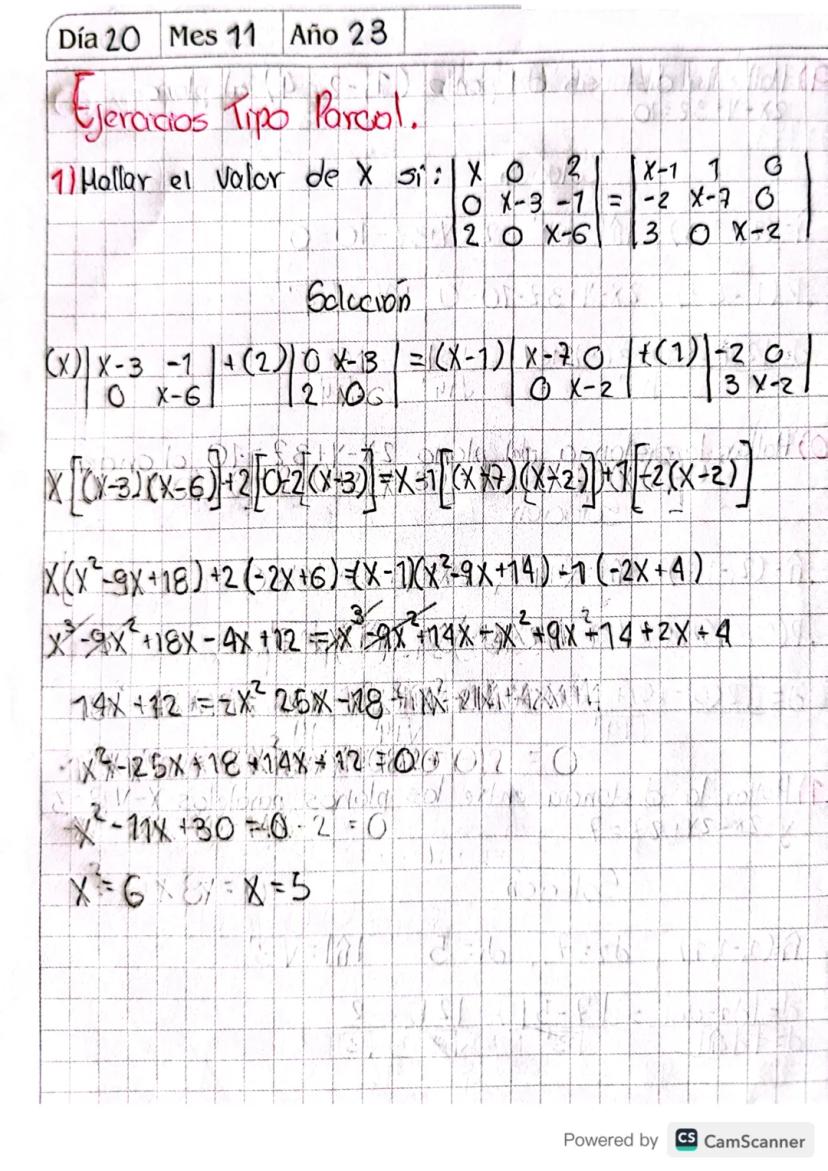 Día 20 Mes 11 Año 23
Ejercicios Tipo Parcial.
1) Hallar el valor de X si: | X 0 2 | = | X-1 1 0 |
| 0 X-3 -1 | | -2 X-7 0 |
| 2 0 X-6 | | 3 0 X-2 |
Solución
(X) | X-3 -1 | + (2) | 0 X-3 | = (X-1) | X-7 0 | + (1) | -2 0 |
| 0 X-6 | | 2 0 | | 0 X-2 | | 3 X-2 |
X[(X-3)(X-6)]+2[0-2(X-3)]=X-1[(X-7)(X-2)]+1[-2(X-2)]
X(X²-9X+18)+2(-2X+6)=(X-1)(X²-9X+14)-1(-2X+4)
X³-9X²+18X-4X+12=X³-9X²+14X-X²+9X²-14+2X-4
14X+12=-X² 25X-18
X²-25X+18+14X+12=0
X²-11X+30=0
X=6 X=5
Powered by CS CamScanner